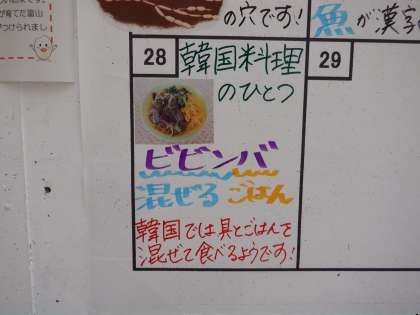 の穴です!
魚が漢字
が育てた富山
28
韓国料理
のひとつ
29
ビビンバ
混ぜる ごはん
韓国では具とごはんを
混ぜて食べるようです!